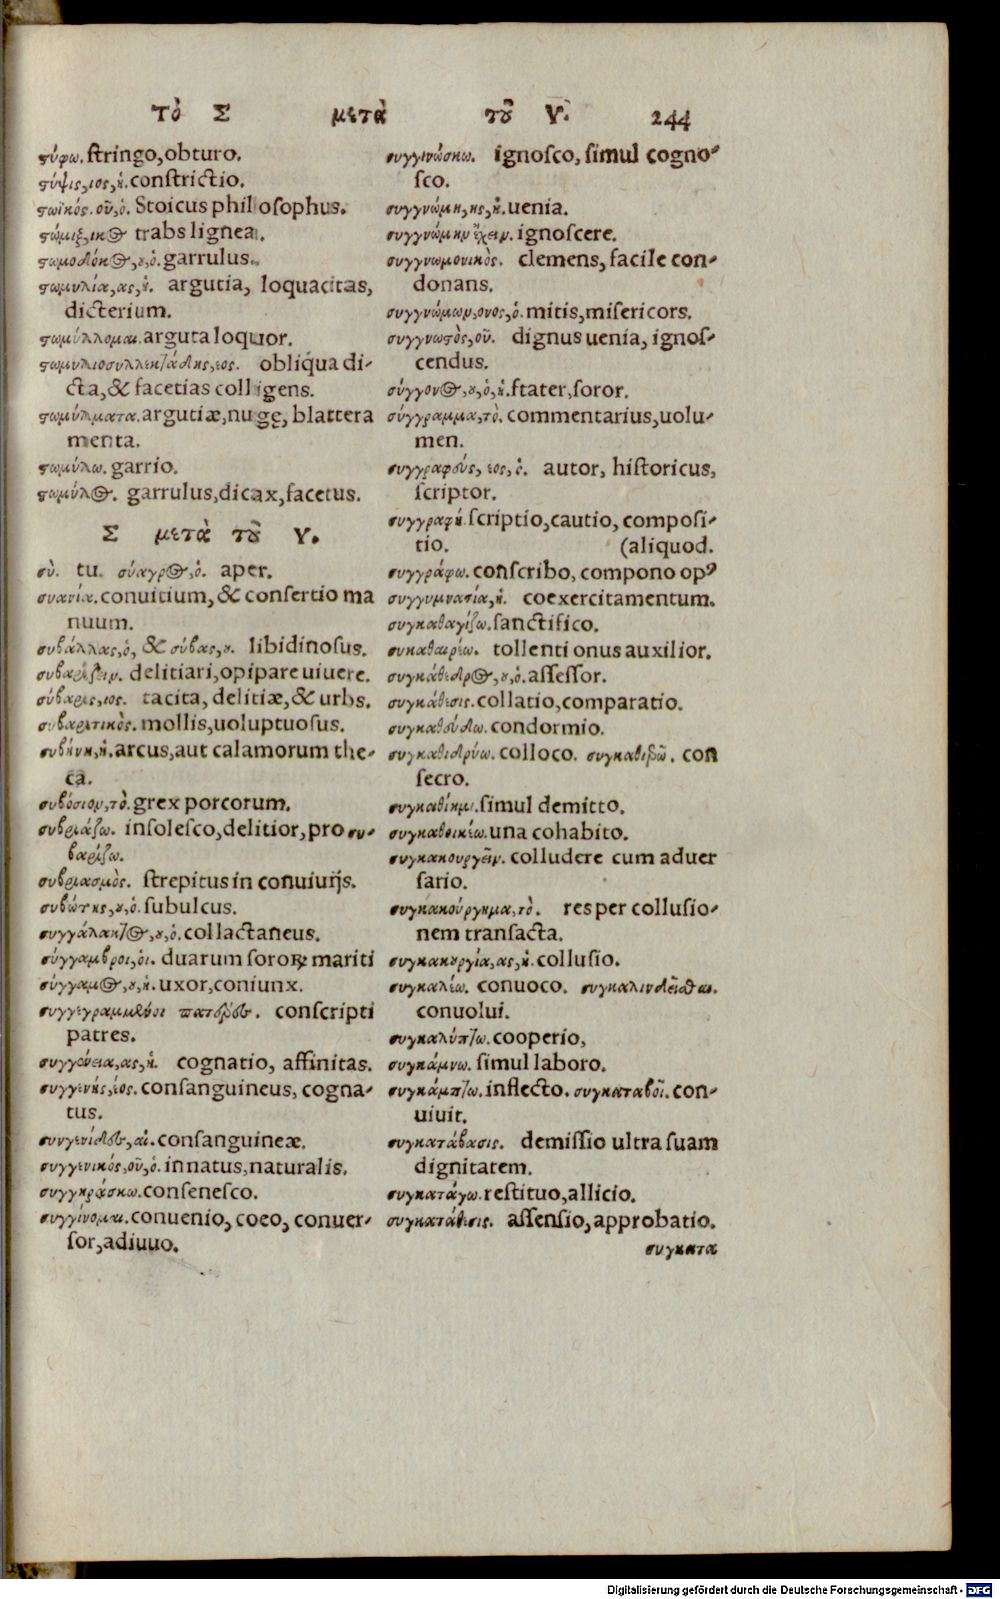 τὸ Σ μετὰ τοῦ Υ. 244
στύφω. stringo, obturo.
στύψις, ιος, ἡ. constrictio.
στωϊκός. οῦ, ὁ. Stoicus philosophus.
στώμιξ, ικος trabs lignea.
στωμοδόκος, ου, ὁ. garrulus.
στωμυλία, ας, ἡ. argutia, loquacitas,
dicterium.
στωμύλλομαι. arguta loquor.
στωμυλιοσυλλεκτάδης, εος. obliqua di-
cta, & facetias colligens.
στωμύλματα. argutiæ, nugę, blattera
menta.
στωμύλω. garrio.
στωμύλος. garrulus, dicax, facetus.
Σ μετὰ τοῦ Υ.
σὺ. tu. σύαγρος, ὁ. aper.
συανία. conuitium, & consertio ma
nuum.
συβάλλας, ὁ, & σύβας, ου. libidinosus.
συβαρίζειν. delitiari, opipare uiuere.
σύβαρις, ιος. tacita, delitiæ, & urbs.
συβαριτικὸς. mollis, uoluptuosus.
συβήνη, ἡ. arcus, aut calamorum the-
ca.
συβόσιον, τὸ. grex porcorum.
συβριάζω. insolesco, delitior, pro συ-
βαρίζω.
συβριασμὸς. strepitus in conuiuijs.
συβώτης, ου, ὁ. subulcus.
συγγάλακτος, ου, ὁ. collactaneus.
σύγγαμβροι, οἱ. duarum sororꝝ mariti
σύγγαμος, ου, ἡ. uxor, coniunx.
συγγεγραμμένοι πατέρες. conscripti
patres.
συγγένεια, ας, ἡ. cognatio, affinitas.
συγγενὴς, έος. consanguineus, cogna-
tus.
συνγενίδες, αἱ. consanguineæ.
συγγενικός, οῦ, ὁ. innatus, naturalis.
συγγηράσκω. consenesco.
συγγίνομαι. conuenio, coeo, conuer-
sor, adiuuo.
συγγινώσκω. ignosco, simul cogno-
sco.
συγγνώμη, ης, ἡ. uenia.
συγγνώμην ἔχειν. ignoscere.
συγγνωμονικὸς. clemens, facile con-
donans.
συγγνώμων, ονος, ὁ. mitis, misericors.
συγγνωστὸς, οῦ. dignus uenia, ignos-
cendus.
σύγγονος, ου, ὁ, ἡ. ftater, soror.
σύγγραμμα, τὸ. commentarius, uolu-
men.
συγγραφεύς, έος, ὁ. autor, historicus,
scriptor.
συγγραφή. scriptio, cautio, composi-
tio. (aliquod.
συγγράφω. conscribo, compono opꝰ
συγγυμνασία, ἡ. coexercitamentum.
συγκαθαγίζω. sanctifico.
συκαθαιρέω. tollenti onus auxilior.
συγκάθεδρος, ου, ὁ. assessor.
συγκάθεσις. collatio, comparatio.
συγκαθεύδω. condormio.
συγκαθιδρύω. colloco. συγκαθιερῶ. con
secro.
συγκαθίημι. simul demitto.
συγκαθοικέω. una cohabito.
συγκακουργεῖν. colludere cum aduer
sario.
συγκακούργημα, τὸ. res per collusio-
nem transacta.
συγκακουργία, ας, ἡ. collusio.
συγκαλέω. conuoco. συγκαλινδεῖσθαι.
conuolui.
συγκαλύπτω. cooperio,
συγκάμνω. simul laboro.
συγκάμπτω. inflecto. συγκαταβοῖ. con-
uiuit.
συγκατάβασις. demissio ultra suam
dignitatem.
συγκατάγω. restituo, allicio.
συγκατάθεσις. assensio, approbatio.
συγκατα
Digitalisierung gefördert durch die Deutsche Forschungsgemeinschaft - DFG